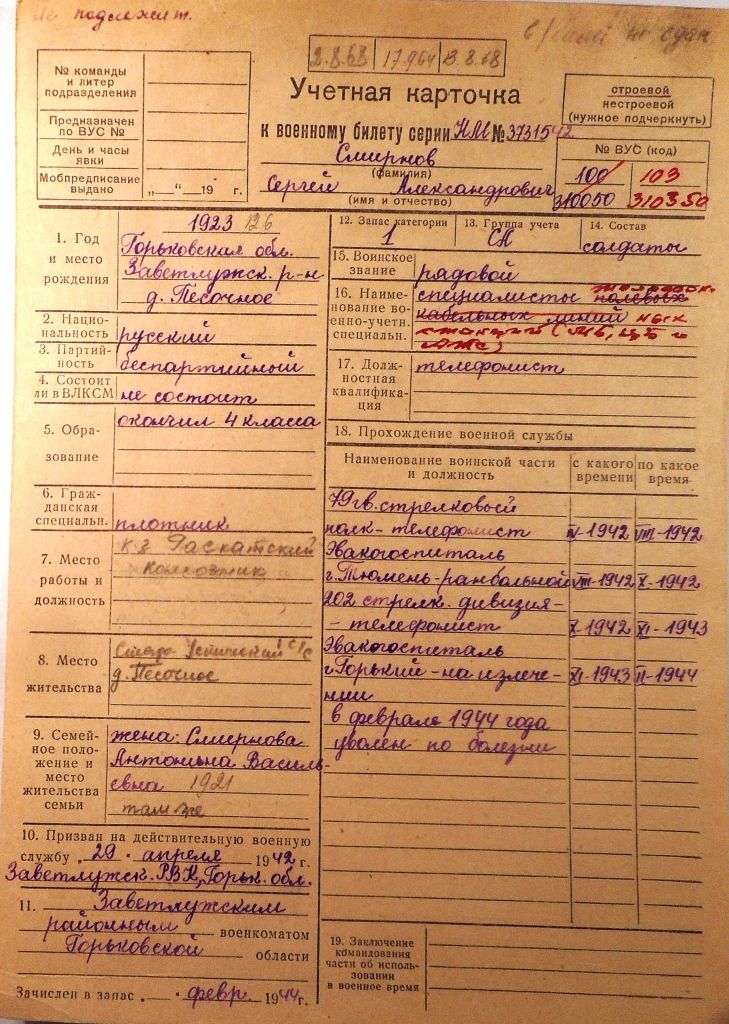 Не подлежит.
сдан
2.8.68 17964 13 8.68
№ команды
и литер
подразделения
Предназначен
по ВУС №
День и часы
явки
Мобпредписание
выдано „ “ 19 г.
Учетная карточка
к военному билету серии НМ № 3731542
Смирнов
(фамилия)
Сергей Александрович
(имя и отчество)
строевой
нестроевой
(нужное подчеркнуть)
№ ВУС (код)
100 103
310050 310350
1. Год
и место
рождения
1923 126
Горьковская обл.
Заветлужск. р-н
д. Песочное
2. Нацио-
нальность русский
3. Партий-
ность беспартийный
4. Состоит
ли в ВЛКСМ не состоит
5. Обра-
зование
окончил 4 класса
6. Граж-
данская
специальн. плотник
7. Место
работы и
должность
к-з
колхозник
8. Место
жительства
с/с
д. Песочное
9. Семей-
ное поло-
жение и
место
жительства
семьи
жена: Смирнова
Антонина Василь-
евна 1921
там же
10. Призван на действительную военную
службу „29 “ апреля 1942 г.
Заветлужск. РВК, Горьк. обл.
11. Заветлужским
районным военкоматом
Горьковской области
Зачислен в запас „ “ февр. 1944 г.
12. Запас категории
1
13. Группа учета
СА
14. Состав
солдаты
15. Воинское
звание рядовой
16. Наиме-
нование во-
енно-учетн.
специальн.
специалисты полевых телефон-
кабельных линий ных
станций (МБ, ЦБ и
АТС)
17. Долж-
ностная
квалифика-
ция
телефонист
18. Прохождение военной службы
Наименование воинской части
и должность
с какого
времени
по какое
время
79 гв. стрелковый
полк - телефонист IV-1942 VIII-1942
Эвакогоспиталь
г. Тюмень - ранбольной VIII-1942 X-1942
202 стрелк. дивизия -
- телефонист X-1942 XI-1943
Эвакогоспиталь
г. Горький - на излече- XI-1943 II-1944
нии
в феврале 1944 года
уволен по болезни
19. Заключение
командования
части об исполь-
зовании
в военное время